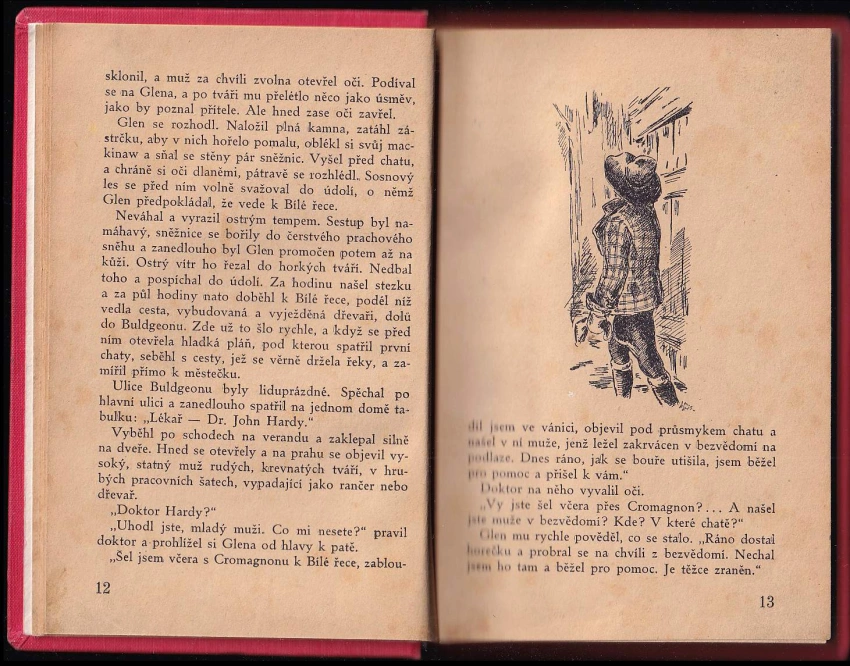 sklonil, a muž za chvíli zvolna otevřel oči. Podíval
se na Glena, a po tváři mu přelétlo něco jako úsměv,
jako by poznal přítele. Ale hned zase oči zavřel.
Glen se rozhodl. Naložil plná kamna, zatáhl zá-
strčku, aby v nich hořelo pomalu, oblékl si svůj mac-
kinaw a sňal se stěny pár sněžnic. Vyšel před chatu,
a chráně si oči dlaněmi, pátravě se rozhlédl. Sosnový
les se před ním volně svažoval do údolí, o němž
Glen předpokládal, že vede k Bílé řece.
Neváhal a vyrazil ostrým tempem. Sestup byl na-
máhavý, sněžnice se bořily do čerstvého prachového
sněhu a zanedlouho byl Glen promočen potem až na
kůži. Ostrý vítr ho řezal do horkých tváří. Nedbal
toho a pospíchal do údolí. Za hodinu našel stezku
a za půl hodiny nato doběhl k Bílé řece, podél níž
vedla cesta, vybudovaná a vyježděná dřevaři, dolů
do Buldgeonu. Zde už to šlo rychle, a když se před
ním otevřela hladká pláň, pod kterou spatřil první
chaty, seběhl s cesty, jež se věrně držela řeky, a za-
mířil přímo k městečku.
Ulice Buldgeonu byly liduprázdné. Spěchal po
hlavní ulici a zanedlouho spatřil na jednom domě ta-
bulku: „Lékař — Dr. John Hardy.“
Vyběhl po schodech na verandu a zaklepal silně
na dveře. Hned se otevřely a na prahu se objevil vy-
soký, statný muž rudých, krevnatých tváří, v hru-
bých pracovních šatech, vypadající jako rančer nebo
dřevař.
„Doktor Hardy?“
„Uhodl jste, mladý muži. Co mi nesete?“ pravil
doktor a prohlížel si Glena od hlavy k patě.
„Šel jsem včera s Cromagnonu k Bílé řece, zablou-
12
dil jsem ve vánici, objevil pod průsmykem chatu a
našel v ní muže, jenž ležel zakrvácen v bezvědomí na
podlaze. Dnes ráno, jak se bouře utišila, jsem běžel
pro pomoc a přišel k vám.“
Doktor na něho vyvalil oči.
„Vy jste šel včera přes Cromagnon?... A našel
jste muže v bezvědomí? Kde? V které chatě?“
Glen mu rychle pověděl, co se stalo. „Ráno dostal
horečku a probral se na chvíli z bezvědomí. Nechal
jsem ho tam a běžel pro pomoc. Je těžce zraněn.“
13